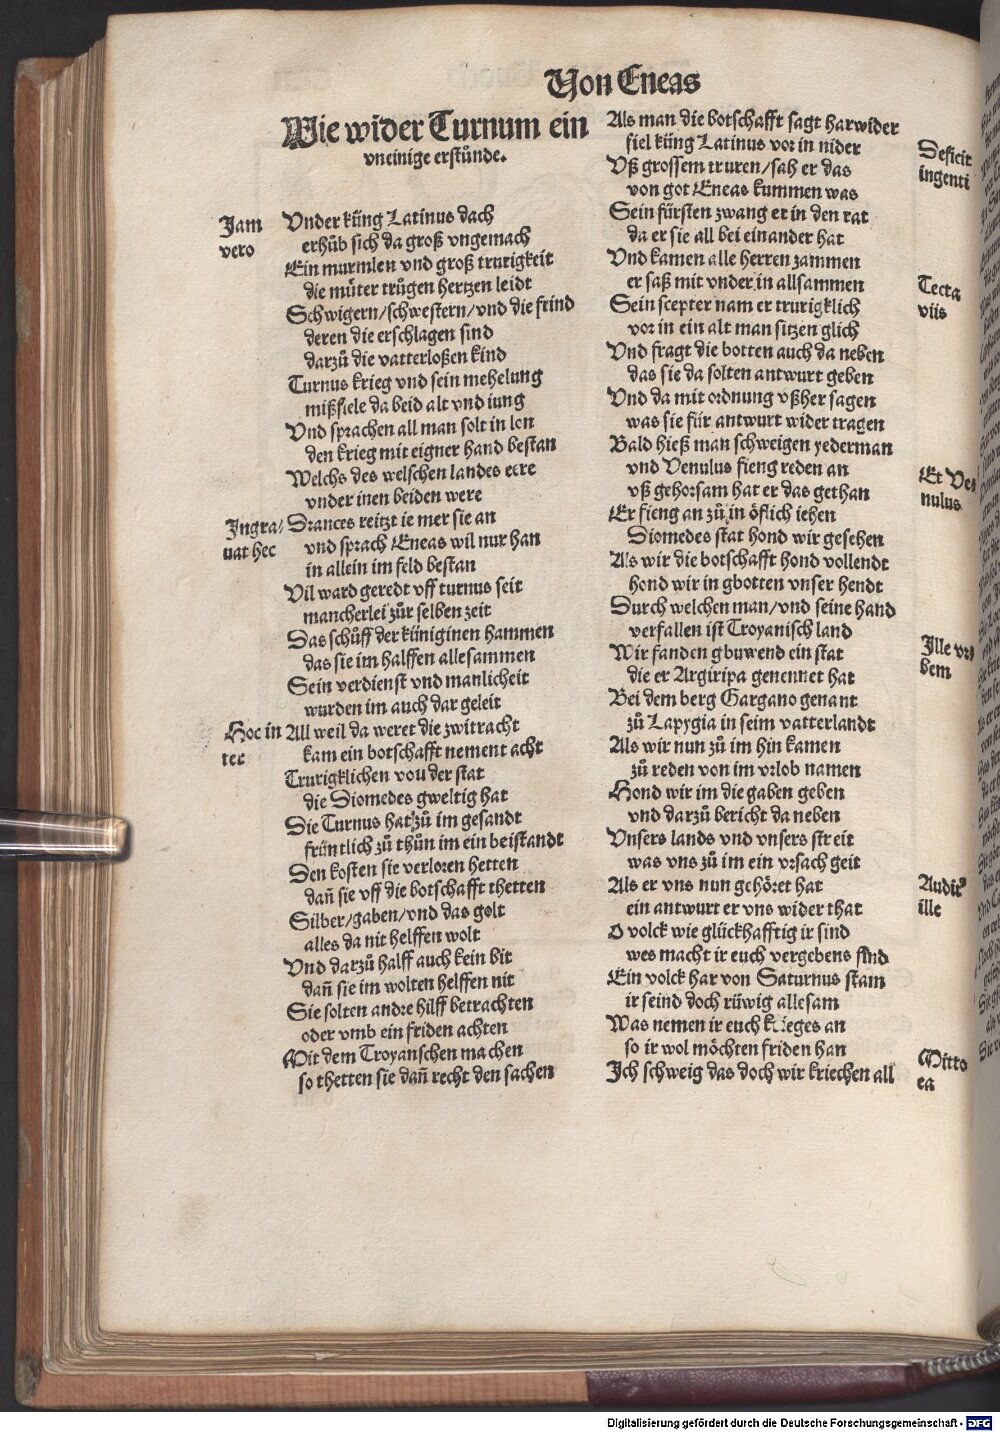 Von Eneas
Wie wider Turnum ein
vneinige erstünde.
Jam
vero
Vnder küng Latinus dach
erhůb sich da groß vngemach
Ein murmlen vnd groß trurigkeit
die můter trůgen hertzen leidt
Schwigern/schwestern/vnd die frind
deren die erschlagen sind
darzů die vatterloßen kind
Turnus krieg vnd sein mehelung
mißfiele da beid alt vnd iung
Vnd sprachen all man solt in lon
den krieg mit eigner hand bestan
Welchs des welschen landes eere
vnder inen beiden were
Ingra/
uat hec
Drances reitzt ie mer sie an
vnd sprach Eneas wil nur han
in allein im feld bestan
Vil ward geredt vff turnus seit
mancherlei zůr selben zeit
Das schůff der küniginen nammen
das sie im halffen allesammen
Sein verdienst vnd manlicheit
wurden im auch dar geleit
Hoc in
ter
All weil da weret die zwitracht
kam ein botschafft nement acht
Trurigklichen von der stat
die Diomedes gweltig hat
Die Turnus hat zů im gesandt
früntlich zů thůn im ein beistandt
Den kosten sie verloren hetten
dañ sie vff die botschafft thetten
Silber/gaben/vnd das golt
alles da nit helffen wolt
Vnd darzů halff auch kein bit
dañ sie im wolten helffen nit
Sie solten andre hilff betrachten
oder vmb ein friden achten
Mit dem Troyanschen machen
so thetten sie dañ recht den sachen
Als man die botschafft sagt harwider
fiel küng Latinus vor in nider
Deficit
ingenti
Vß grossem truren/sah er das
von got Eneas kummen was
Sein fürsten zwang er in den rat
da er sie all bei einander hat
Vnd kamen alle herren zammen
er saß mit vnder in allsammen
Tecta
viis
Sein scepter nam er trurigklich
vor in ein alt man sitzen glich
Vnd fragt die botten auch da neben
das sie da solten antwurt geben
Vnd da mit ordnung vßher sagen
was sie für antwurt wider tragen
Bald hieß man schweigen yederman
vnd Venulus fieng reden an
Et Ve
nulus
vß gehorsam hat er das gethan
Er fieng an zů in öflich iehen
Diomedes stat hond wir gesehen
Als wir die botschafft hond vollendt
hond wir in gbotten vnser hendt
Durch welchen man/vnd seine hand
verfallen ist Troyanisch land
Wir fanden gbuwend ein stat
die er Argiripa genennet hat
Ille vr
bem
Bei dem berg Gargano genant
zů Lapygia in seim vatterlandt
Als wir nun zů im hin kamen
zů reden von im vrlob namen
Hond wir im die gaben geben
vnd darzů bericht da neben
Vnsers lands vnd vnsers streit
was vns zů im ein vrsach geit
Als er vns nun gehöret hat
ein antwurt er vns wider that
Auditꝰ
ille
O volck wie glückhafftig ir sind
wes macht ir euch vergebens find
Ein volck har von Saturnus stam
ir seind doch rüwig allesam
Was nemen ir euch krieges an
so ir wol möchten friden han
Ich schweig das doch wir kriechen all
Mitto
ea
Digitalisierung gefördert durch die Deutsche Forschungsgemeinschaft - DFG